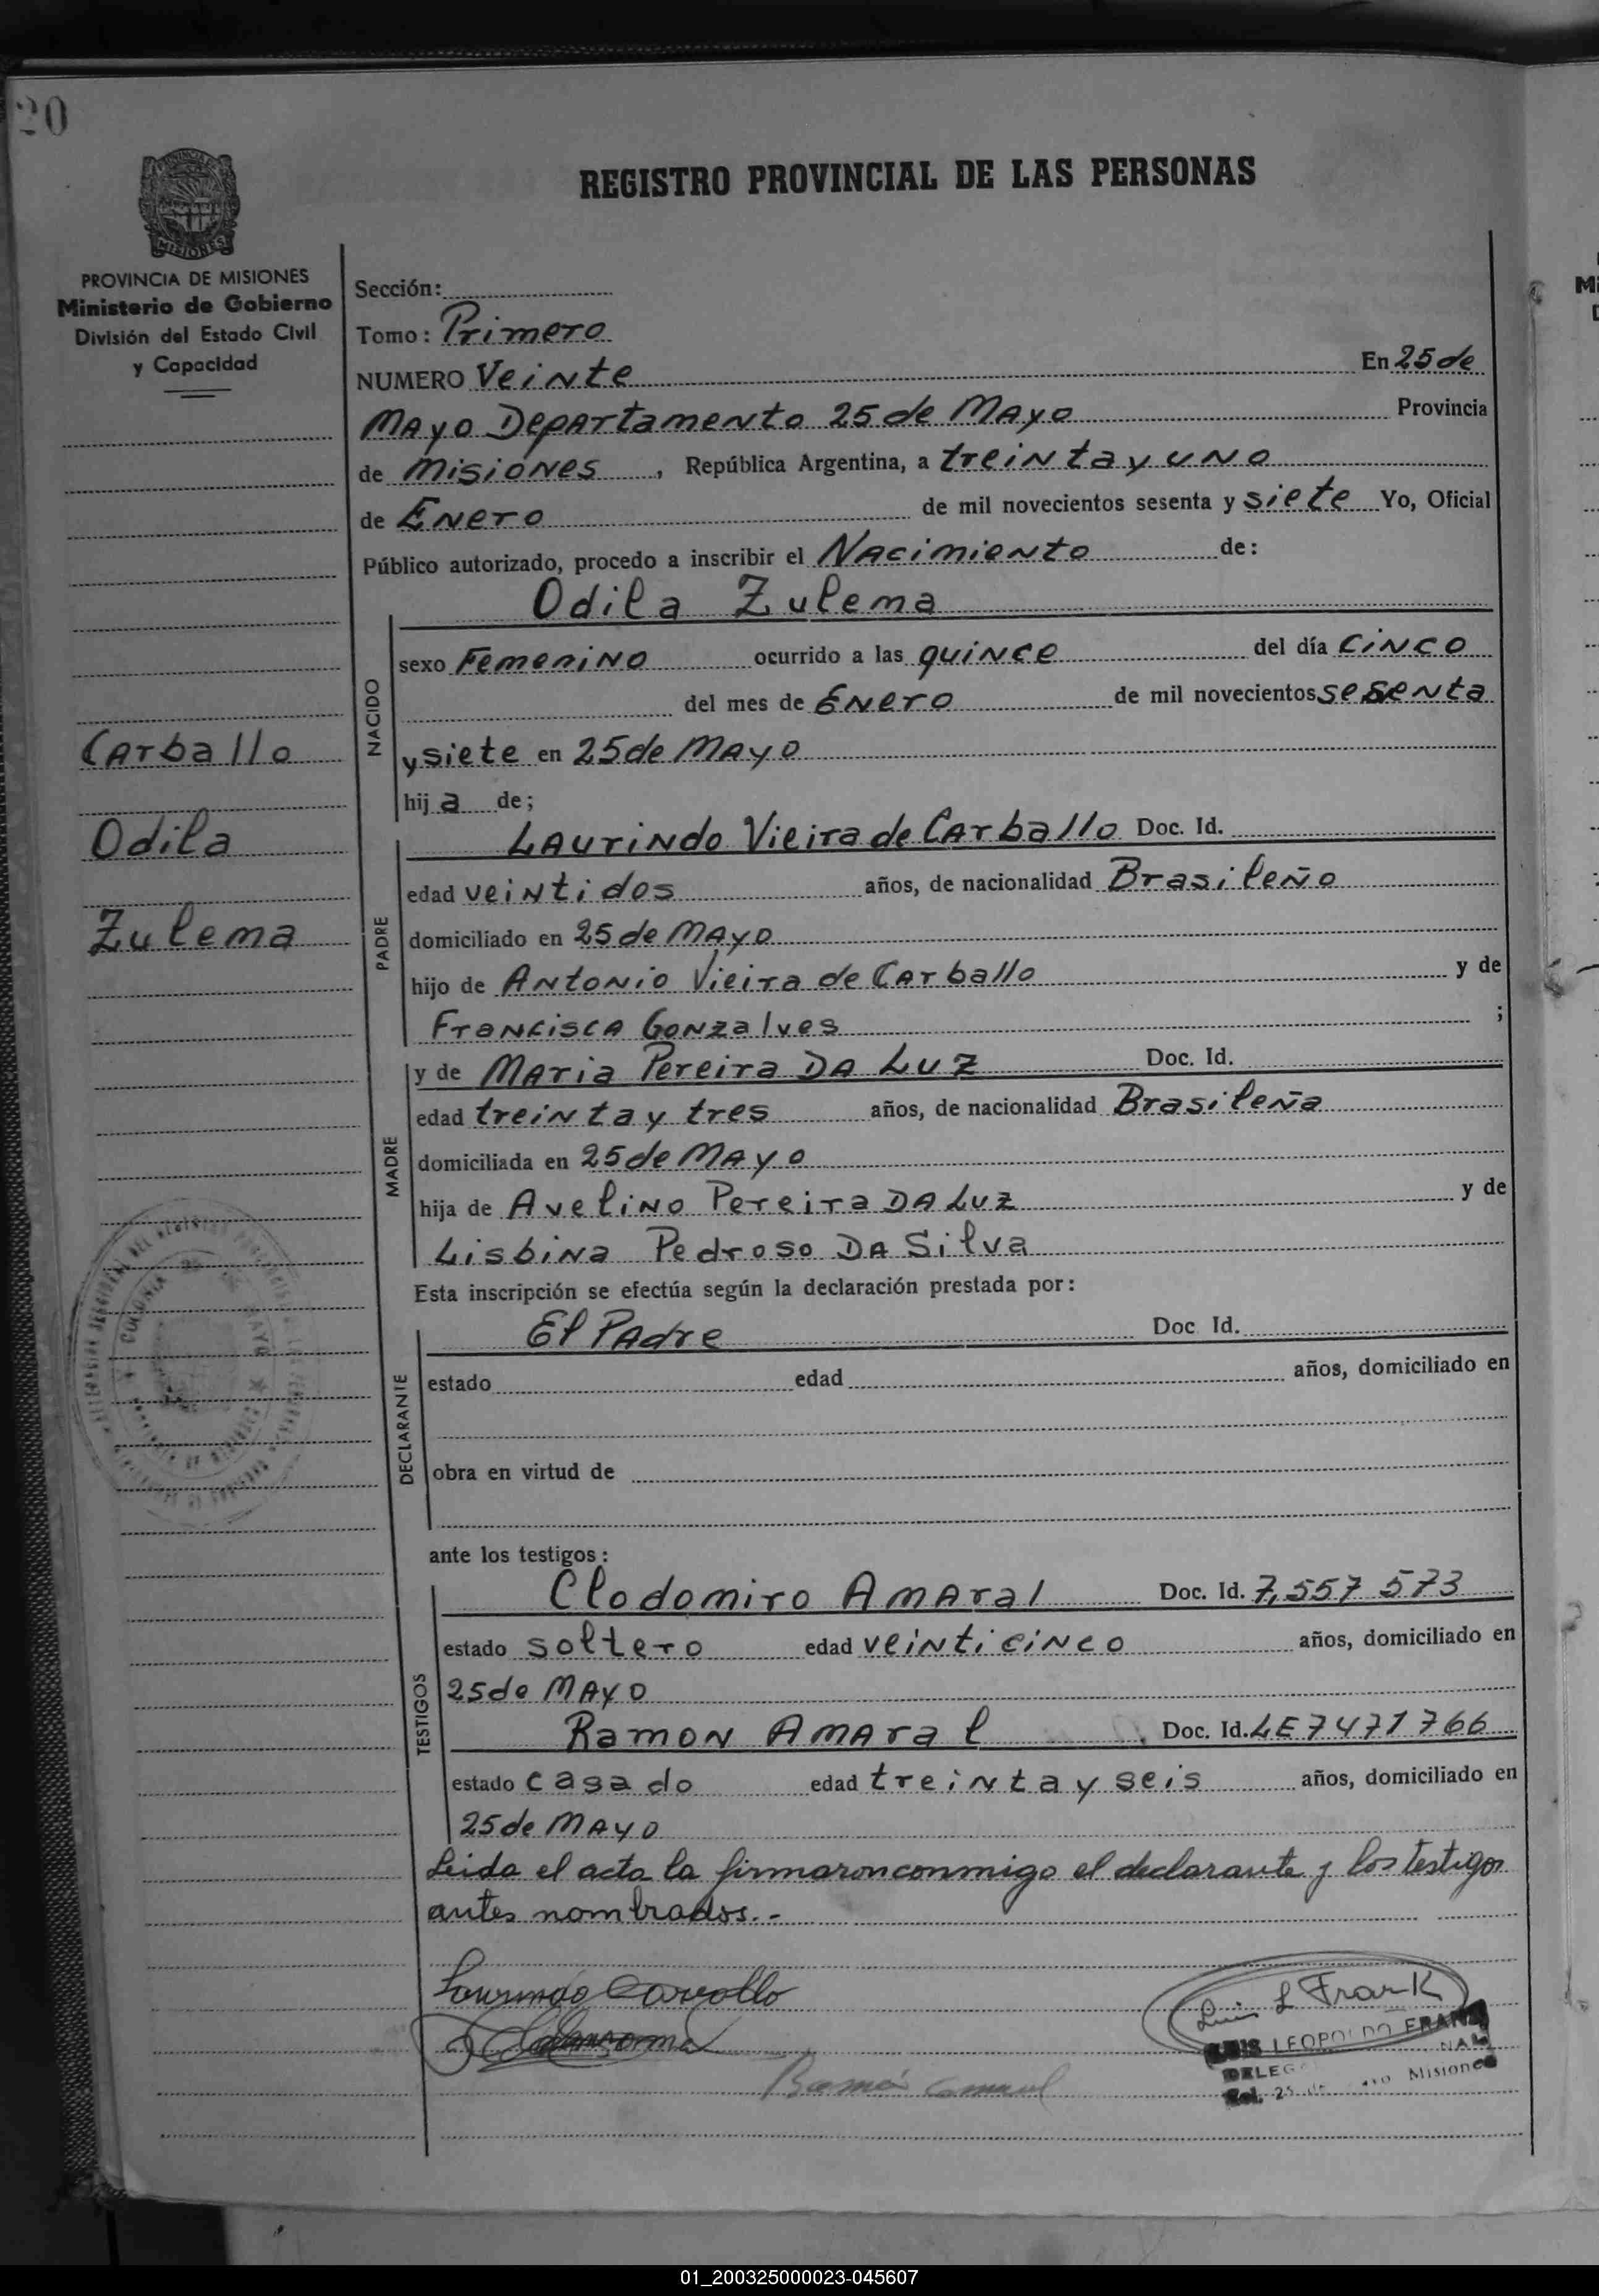 20
REGISTRO PROVINCIAL DE LAS PERSONAS
MISIONES
PROVINCIA DE MISIONES
Ministerio de Gobierno
División del Estado Civil
y Capacidad
Sección:
Tomo: Primero
NUMERO Veinte En 25 de
Mayo Departamento 25 de Mayo Provincia
de Misiones, República Argentina, a treinta y uno
de Enero de mil novecientos sesenta y siete Yo, Oficial
Público autorizado, procedo a inscribir el Nacimiento de:
Odila Zulema
NACIDO
sexo Femenino ocurrido a las quince del día cinco
del mes de Enero de mil novecientos sesenta
y siete en 25 de Mayo
hija de;
Carballo
Odila
Zulema
PADRE
Laurindo Vieira de Carballo Doc. Id.
edad veintidos años, de nacionalidad Brasileño
domiciliado en 25 de Mayo
hijo de Antonio Vieira de Carballo y de
Francisca Gonzalves ;
MADRE
y de Maria Pereira Da Luz Doc. Id.
edad treinta y tres años, de nacionalidad Brasileña
domiciliada en 25 de Mayo
hija de Avelino Pereira Da Luz y de
Lisbina Pedroso Da Silva
Esta inscripción se efectúa según la declaración prestada por:
DECLARANTE
El Padre Doc Id.
estado edad años, domiciliado en
obra en virtud de
ante los testigos:
TESTIGOS
Clodomiro Amaral Doc. Id. 7,557 573
estado soltero edad veinticinco años, domiciliado en
25 de Mayo
Ramon Amaral Doc. Id. LE 7471766
estado casado edad treinta y seis años, domiciliado en
25 de Mayo
Leida el acta la firmaron conmigo el declarante y los testigos
antes nombrados.-
Luis L Frank
LUIS LEOPOLDO FRANK
Misiones
01_200325000023-045607